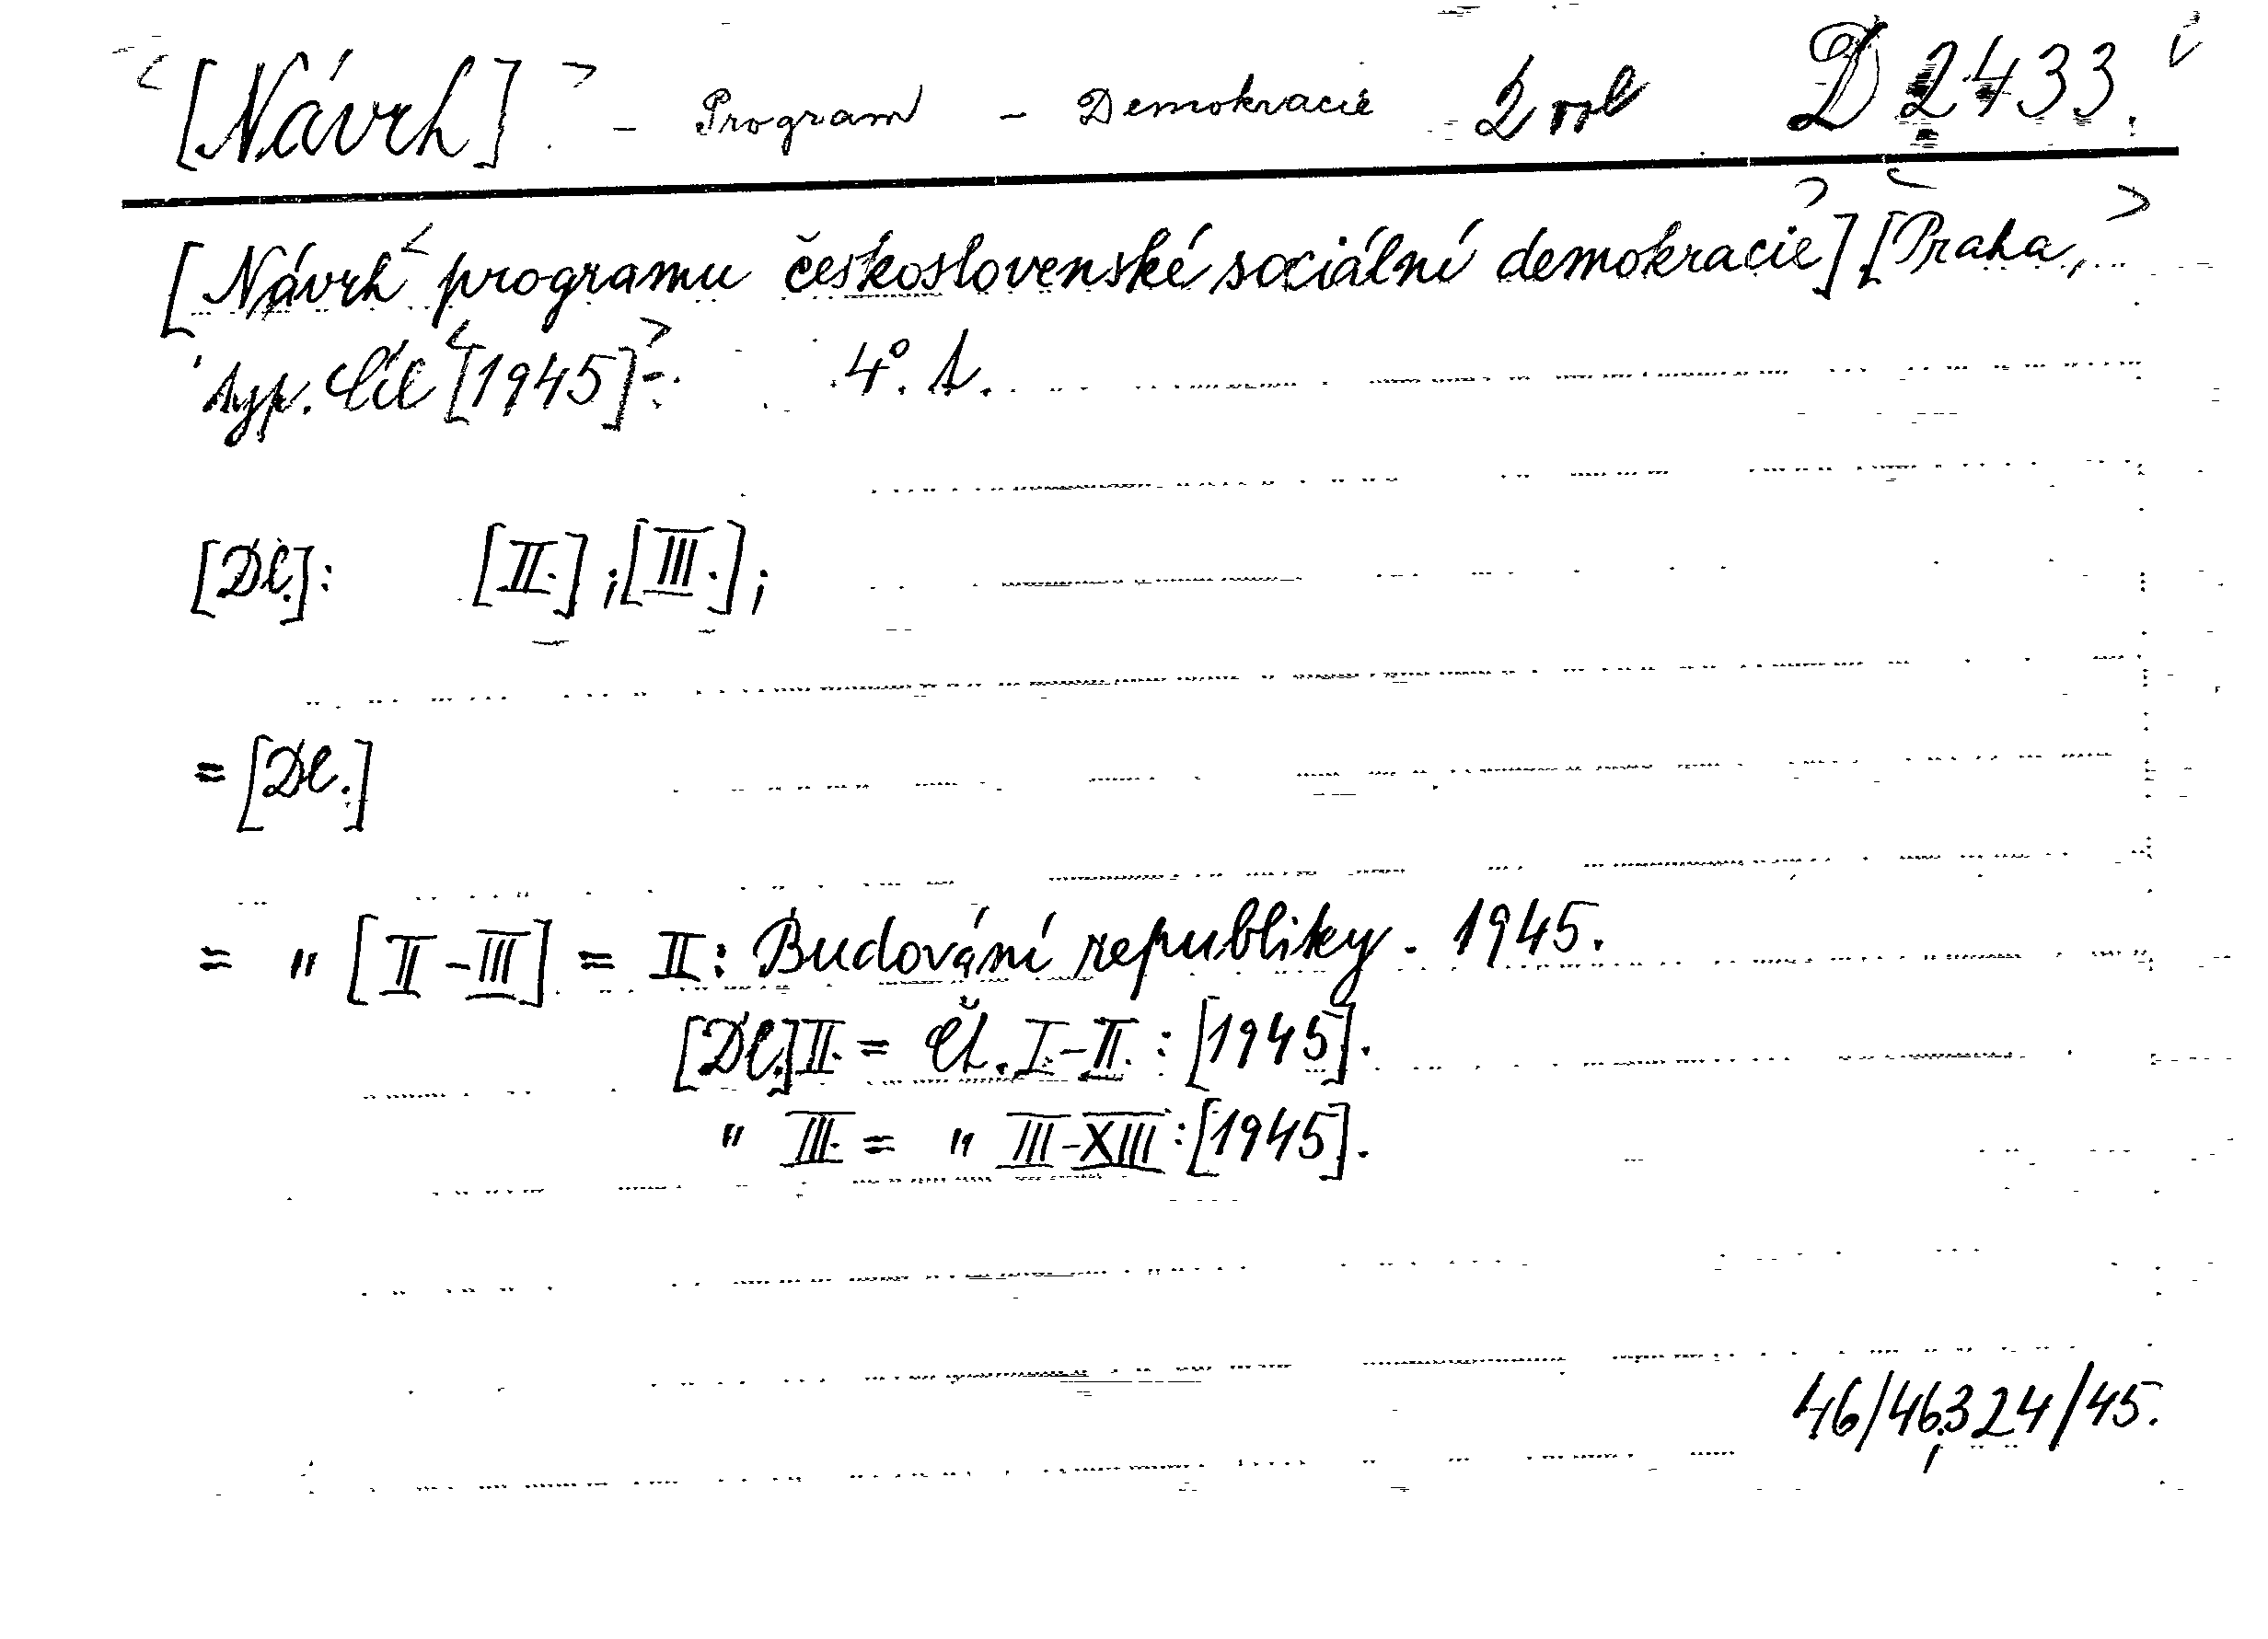 <[Návrh]> - Program - Demokracie 2 sv D 2433.
[Návrh programu československé sociální demokracie] [Praha,
typ. Cíl [1945] -. 4°. t.
[Dl.]: [II.]; [III.];
= [Dl.]
= " [II-III] = II: Budování republiky. 1945.
[Dl.] II. = Čl. I.-II. : [1945].
" III. = " III-XIII : [1945].
46/46.324/45.